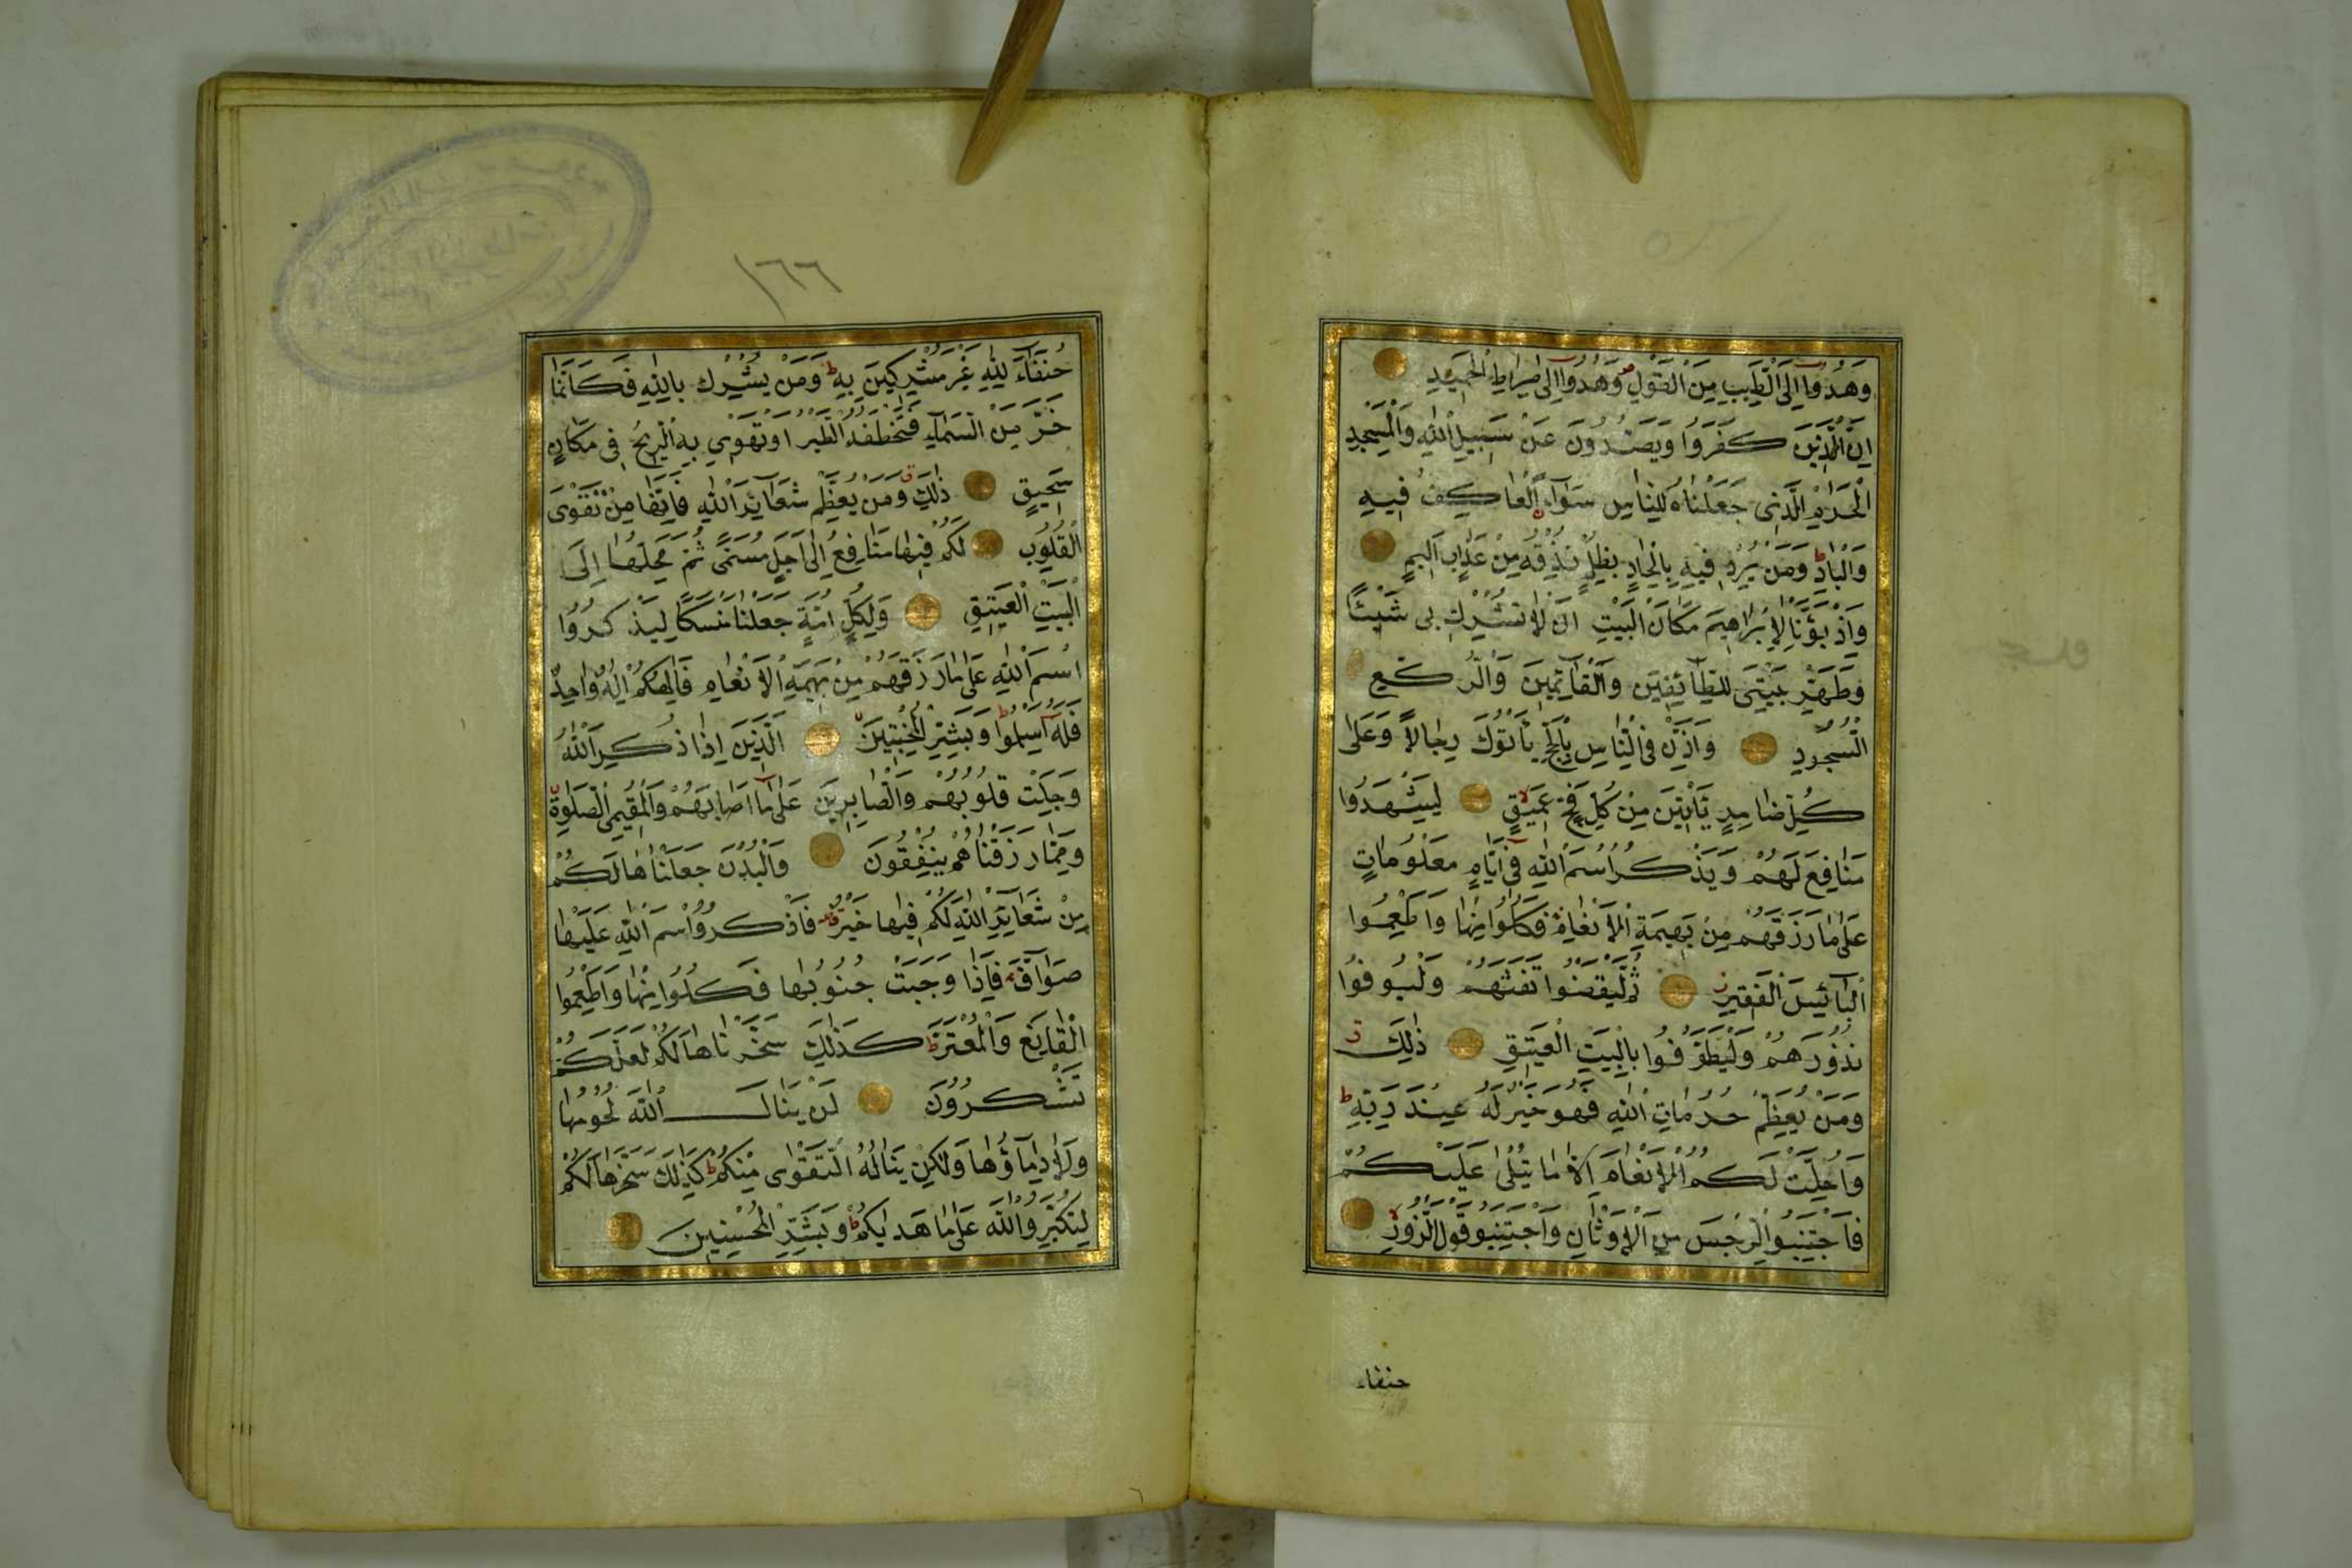 وَهُدُوا اِلَى الطَّيِّبِ مِنَ الْقَوْلِ وَهُدُوا اِلٰى صِرَاطِ الْحَمِيدِ
اِنَّ الَّذِينَ كَفَرُوا وَيَصُدُّونَ عَنْ سَبِيلِ اللّٰهِ وَالْمَسْجِدِ
الْحَرَامِ الَّذِى جَعَلْنَاهُ لِلنَّاسِ سَوَآءً الْعَاكِفُ فِيهِ
وَالْبَادِ وَمَنْ يُرِدْ فِيهِ بِاِلْحَادٍ بِظُلْمٍ نُذِقْهُ مِنْ عَذَابٍ اَلِيمٍ
وَاِذْ بَوَّئْنَا لِاِبْرَاهِيمَ مَكَانَ الْبَيْتِ اَنْ لَا تُشْرِكْ بِى شَيْئًا
وَطَهِّرْ بَيْتِىَ لِلطَّآئِفِينَ وَالْقَآئِمِينَ وَالرُّكَّعِ
السُّجُودِ وَاَذِّنْ فِى النَّاسِ بِالْحَجِّ يَأْتُوكَ رِجَالًا وَعَلٰى
كُلِّ ضَامِرٍ يَأْتِينَ مِنْ كُلِّ فَجٍّ عَمِيقٍ لِيَشْهَدُوا
مَنَافِعَ لَهُمْ وَيَذْكُرُوا اسْمَ اللّٰهِ فِى اَيَّامٍ مَعْلُومَاتٍ
عَلٰى مَا رَزَقَهُمْ مِنْ بَهِيمَةِ الْاَنْعَامِ فَكُلُوا مِنْهَا وَاَطْعِمُوا
الْبَآئِسَ الْفَقِيرَ ثُمَّ لْيَقْضُوا تَفَثَهُمْ وَلْيُوفُوا
نُذُورَهُمْ وَلْيَطَّوَّفُوا بِالْبَيْتِ الْعَتِيقِ ذٰلِكَ
وَمَنْ يُعَظِّمْ حُرُمَاتِ اللّٰهِ فَهُوَ خَيْرٌ لَهُ عِنْدَ رَبِّهِ
وَاُحِلَّتْ لَكُمُ الْاَنْعَامُ اِلَّا مَا يُتْلٰى عَلَيْكُمْ
فَاجْتَنِبُوا الرِّجْسَ مِنَ الْاَوْثَانِ وَاجْتَنِبُوا قَوْلَ الزُّورِ
حنفاء
١٦٦
حُنَفَآءَ لِلّٰهِ غَيْرَ مُشْرِكِينَ بِهِ وَمَنْ يُشْرِكْ بِاللّٰهِ فَكَاَنَّمَا
خَرَّ مِنَ السَّمَآءِ فَتَخْطَفُهُ الطَّيْرُ اَوْ تَهْوِي بِهِ الرِّيحُ فِى مَكَانٍ
سَحِيقٍ ذٰلِكَ وَمَنْ يُعَظِّمْ شَعَآئِرَ اللّٰهِ فَاِنَّهَا مِنْ تَقْوَى
الْقُلُوبِ لَكُمْ فِيهَا مَنَافِعُ اِلٰى اَجَلٍ مُسَمًّى ثُمَّ مَحِلُّهَا اِلَى
الْبَيْتِ الْعَتِيقِ وَلِكُلِّ اُمَّةٍ جَعَلْنَا مَنْسَكًا لِيَذْكُرُوا
اسْمَ اللّٰهِ عَلٰى مَا رَزَقَهُمْ مِنْ بَهِيمَةِ الْاَنْعَامِ فَاِلٰهُكُمْ اِلٰهٌ وَاحِدٌ
فَلَهُ اَسْلِمُوا وَبَشِّرِ الْمُخْبِتِينَ الَّذِينَ اِذَا ذُكِرَ اللّٰهُ
وَجِلَتْ قُلُوبُهُمْ وَالصَّابِرِينَ عَلٰى مَا اَصَابَهُمْ وَالْمُقِيمِى الصَّلٰوةِ
وَمِمَّا رَزَقْنَاهُمْ يُنْفِقُونَ وَالْبُدْنَ جَعَلْنَاهَا لَكُمْ
مِنْ شَعَآئِرِ اللّٰهِ لَكُمْ فِيهَا خَيْرٌ فَاذْكُرُوا اسْمَ اللّٰهِ عَلَيْهَا
صَوَآفَّ فَاِذَا وَجَبَتْ جُنُوبُهَا فَكُلُوا مِنْهَا وَاَطْعِمُوا
الْقَانِعَ وَالْمُعْتَرَّ كَذٰلِكَ سَخَّرْنَاهَا لَكُمْ لَعَلَّكُمْ
تَشْكُرُونَ لَنْ يَنَالَ اللّٰهَ لُحُومُهَا
وَلَا دِمَآؤُهَا وَلٰكِنْ يَنَالُهُ التَّقْوٰى مِنْكُمْ كَذٰلِكَ سَخَّرَهَا لَكُمْ
لِتُكَبِّرُوا اللّٰهَ عَلٰى مَا هَدٰيكُمْ وَبَشِّرِ الْمُحْسِنِينَ